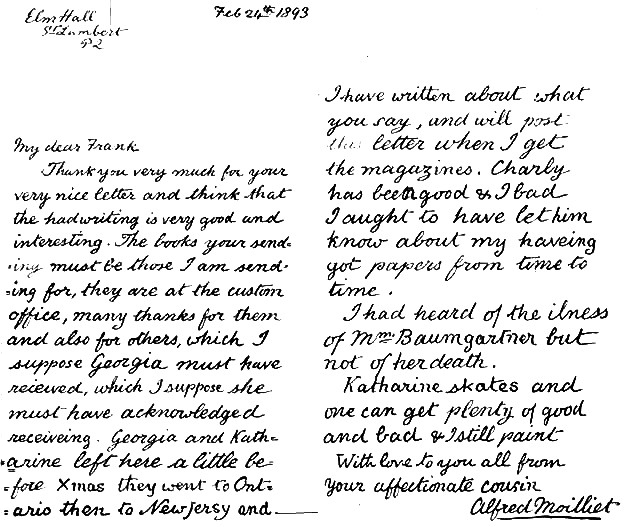 Elm Hall
St Lambert
P2
Feb 24th 1893
My dear Frank
Thank you very much for your
very nice letter and think that
the hadwriting is very good and
interesting. The books your send=
ing must be those I am send=
=ing for, they are at the custom
office, many thanks for them
and also for others, which I
suppose Georgia must have
reieved, which I suppose she
must have acknowledged
receiveing. Georgia and Kath=
=arine left here a little be=
=fore Xmas they went to Ont=
=ario then to New Jersy and
I have written about what
you say, and will post
this letter when I get
the magazines. Charly
has been good & I bad
I aught to have let him
know about my haveing
got papers from time to
time.
I had heard of the ilness
of Mrs Baumgartner but
not of her death.
Katharine skates and
one can get plenty of good
and bad & I still paint
With love to you all from
Your affectionate cousin
Alfred Moilliet